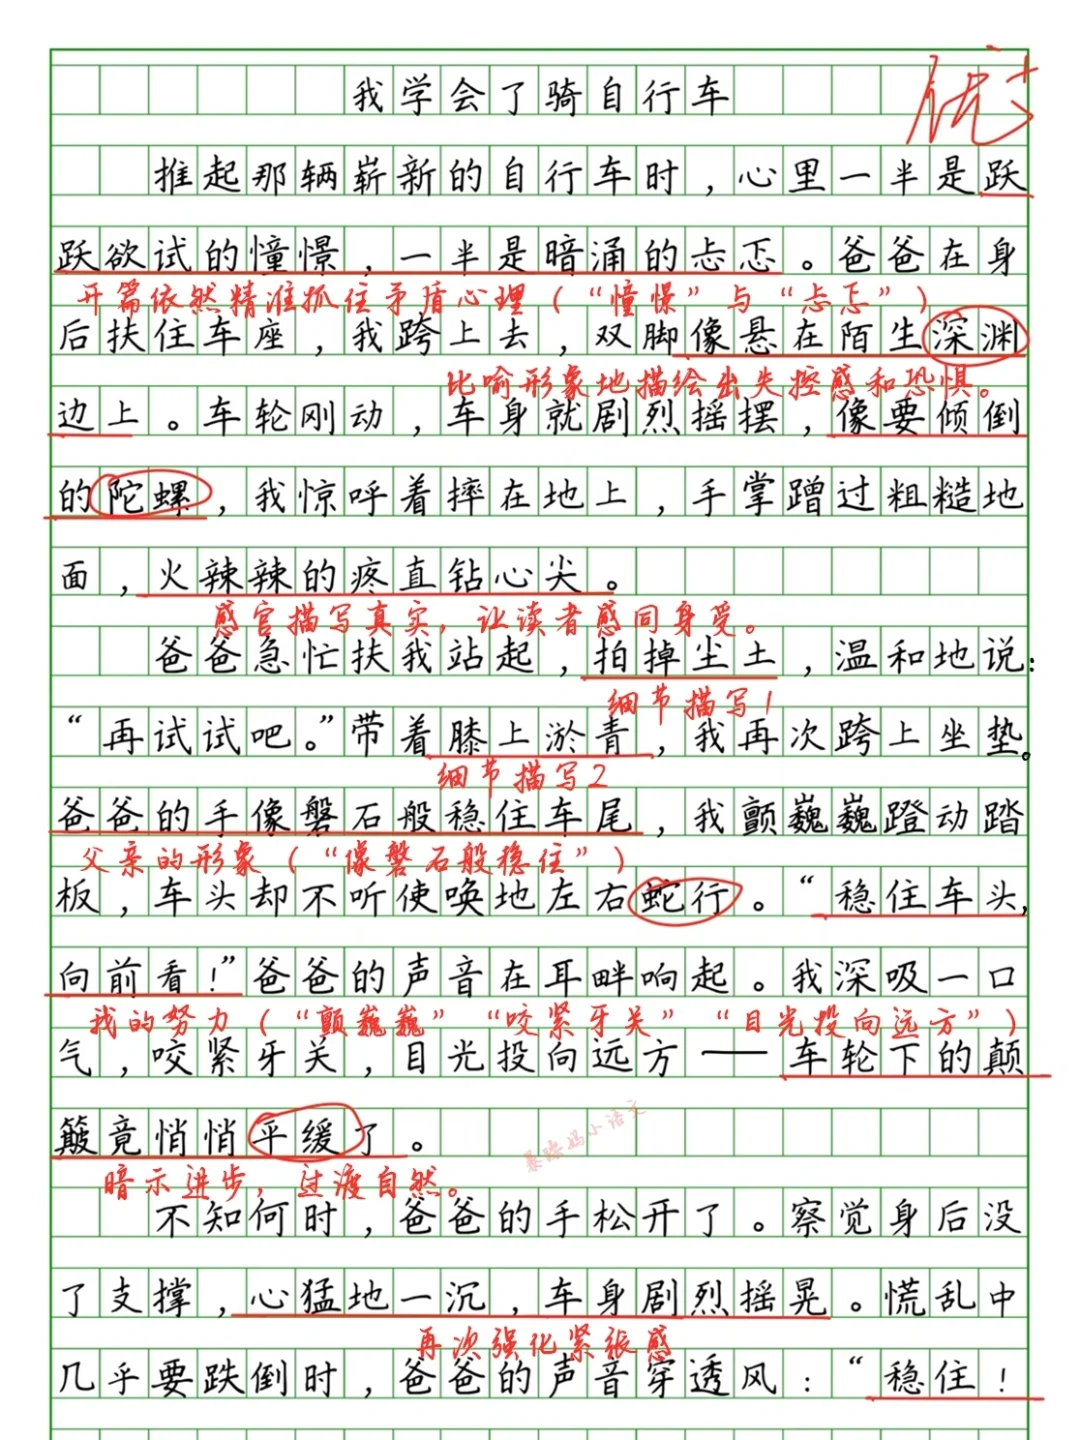 我学会了骑自行车
优+
推起那辆崭新的自行车时，心里一半是跃
跃欲试的憧憬，一半是暗涌的忐忑。爸爸在身
开篇依然精准抓住矛盾心理（“憧憬”与“忐忑”）
后扶住车座，我跨上去，双脚像悬在陌生深渊
比喻形象地描绘出失控感和恐惧。
边上。车轮刚动，车身就剧烈摇摆，像要倾倒
的陀螺，我惊呼着摔在地上，手掌蹭过粗糙地
面，火辣辣的疼直钻心尖。
感官描写真实，让读者感同身受。
爸爸急忙扶我站起，拍掉尘土，温和地说：
细节描写1
“再试试吧。”带着膝上淤青，我再次跨上坐垫。
细节描写2
爸爸的手像磐石般稳住车尾，我颤巍巍蹬动踏
父亲的形象（“像磐石般稳住”）
板，车头却不听使唤地左右蛇行。“稳住车头，
向前看！”爸爸的声音在耳畔响起。我深吸一口
我的努力（“颤巍巍”“咬紧牙关”“目光投向远方”）
气，咬紧牙关，目光投向远方——车轮下的颠
簸竟悄悄平缓了。
暴躁妈小语文
暗示进步，过渡自然。
不知何时，爸爸的手松开了。察觉身后没
了支撑，心猛地一沉，车身剧烈摇晃。慌乱中
再次强化紧张感
几乎要跌倒时，爸爸的声音穿透风：“稳住！